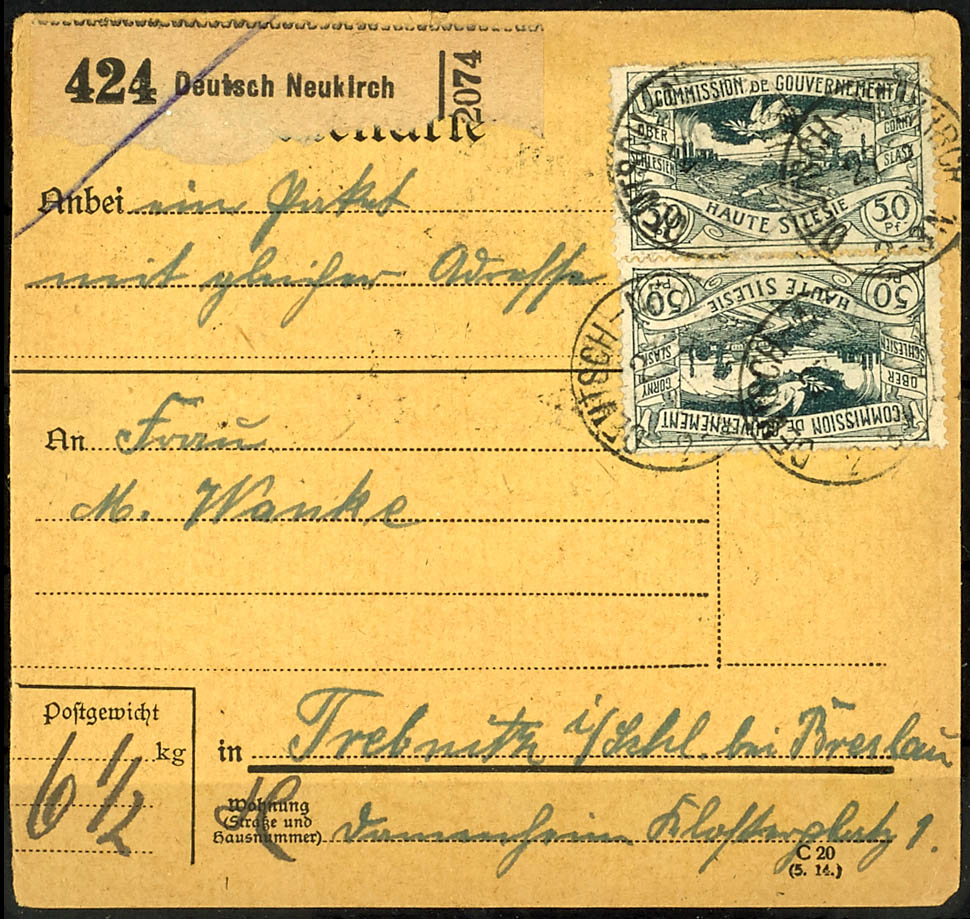 424 Deutsch Neukirch 2074
Anbei ein Paket
mit gleicher Adresse
An Frau
M. Wanke
Postgewicht
kg
6 1/2
in Trebnitz i/Schl. bei Breslau
Wohnung
(Straße und
Hausnummer) Damenheim Klosterplatz 1.
C 20
(5. 14.)
COMMISSION DE GOUVERNEMENT
OBER SCHLESIEN
GORNY SLASK
HAUTE SILESIE
50 Pf
50 Pf
50 Pf
50 Pf
HAUTE SILESIE
SLASK GORNY
OBER SCHLESIEN
COMMISSION DE GOUVERNEMENT
DEUTSCH-